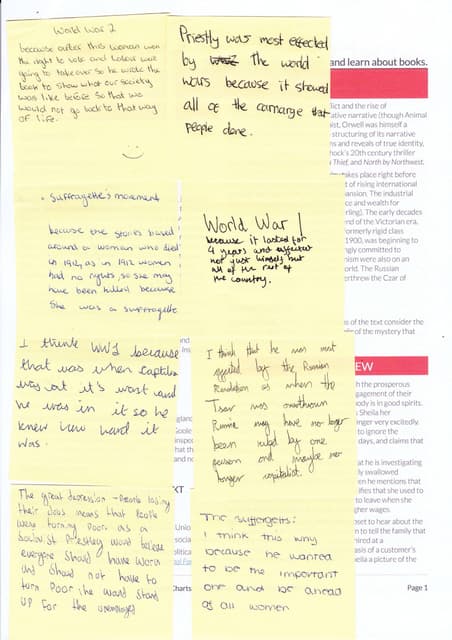 World War 2
because after this woman won
the right to vote and Labour were
going to takeover so he wrote the
book to show what our society
was like before so that we
would not go back to that way
of life.
Priestly was most effected
by the world
wars because it showed
all of the carnage that
people done.
and learn about books.
lict and the rise of
ative narrative (though Animal
ist, Orwell was himself a
structuring of its narrative
ns and reveals of true identity,
hock's 20th century thriller
Thief, and North by Northwest.
takes place right before
t of rising international
ansion. The industrial
ce and wealth for
rling). The early decades
nd of the Victorian era.
ormerly rigid class
1900, was beginning to
gly committed to
nism were also on an
orld. The Russian
erthrew the Czar of
• Suffragette's movement
because the stories based
around a woman who died
in 1912, as in 1912 women
had no rights, so she may
have been killed because
she was a suffragette
World War 1
because it lasted for
4 years and effected
not just himself but
all of the rest of
the country.
ns of the text consider the
of the mystery that
I think WW2 because
that was when
was at it's worst and
he was in it so he
knew how hard it
was.
I think that he was most
effected by the Russian
Revolution as when the
Tsar was overthrown
Russia may have no longer
been ruled by one
person and maybe no
longer capitalist.
EW
h the prosperous
gagement of their
body is in good spirits.
s Sheila her
inger very excitedly.
to ignore the
days, and claims that
at he is investigating
ly swallowed
en he mentions that
ifes that she used to
to leave when she
gher wages.
pset to hear about the
n to tell the family that
hired at a
asis of a customer's
eila a picture of the
The great depression - People losing
their jobs means that People
were turning Poor. as a
Socialist Priestley would believe
everyone should have work
and should not have to
turn Poor. He would stand
UP for the unemployed
The suffergetts:
I think this why
because he wanted
to be the important
one and be ahead
of all women
Charts
Page 1